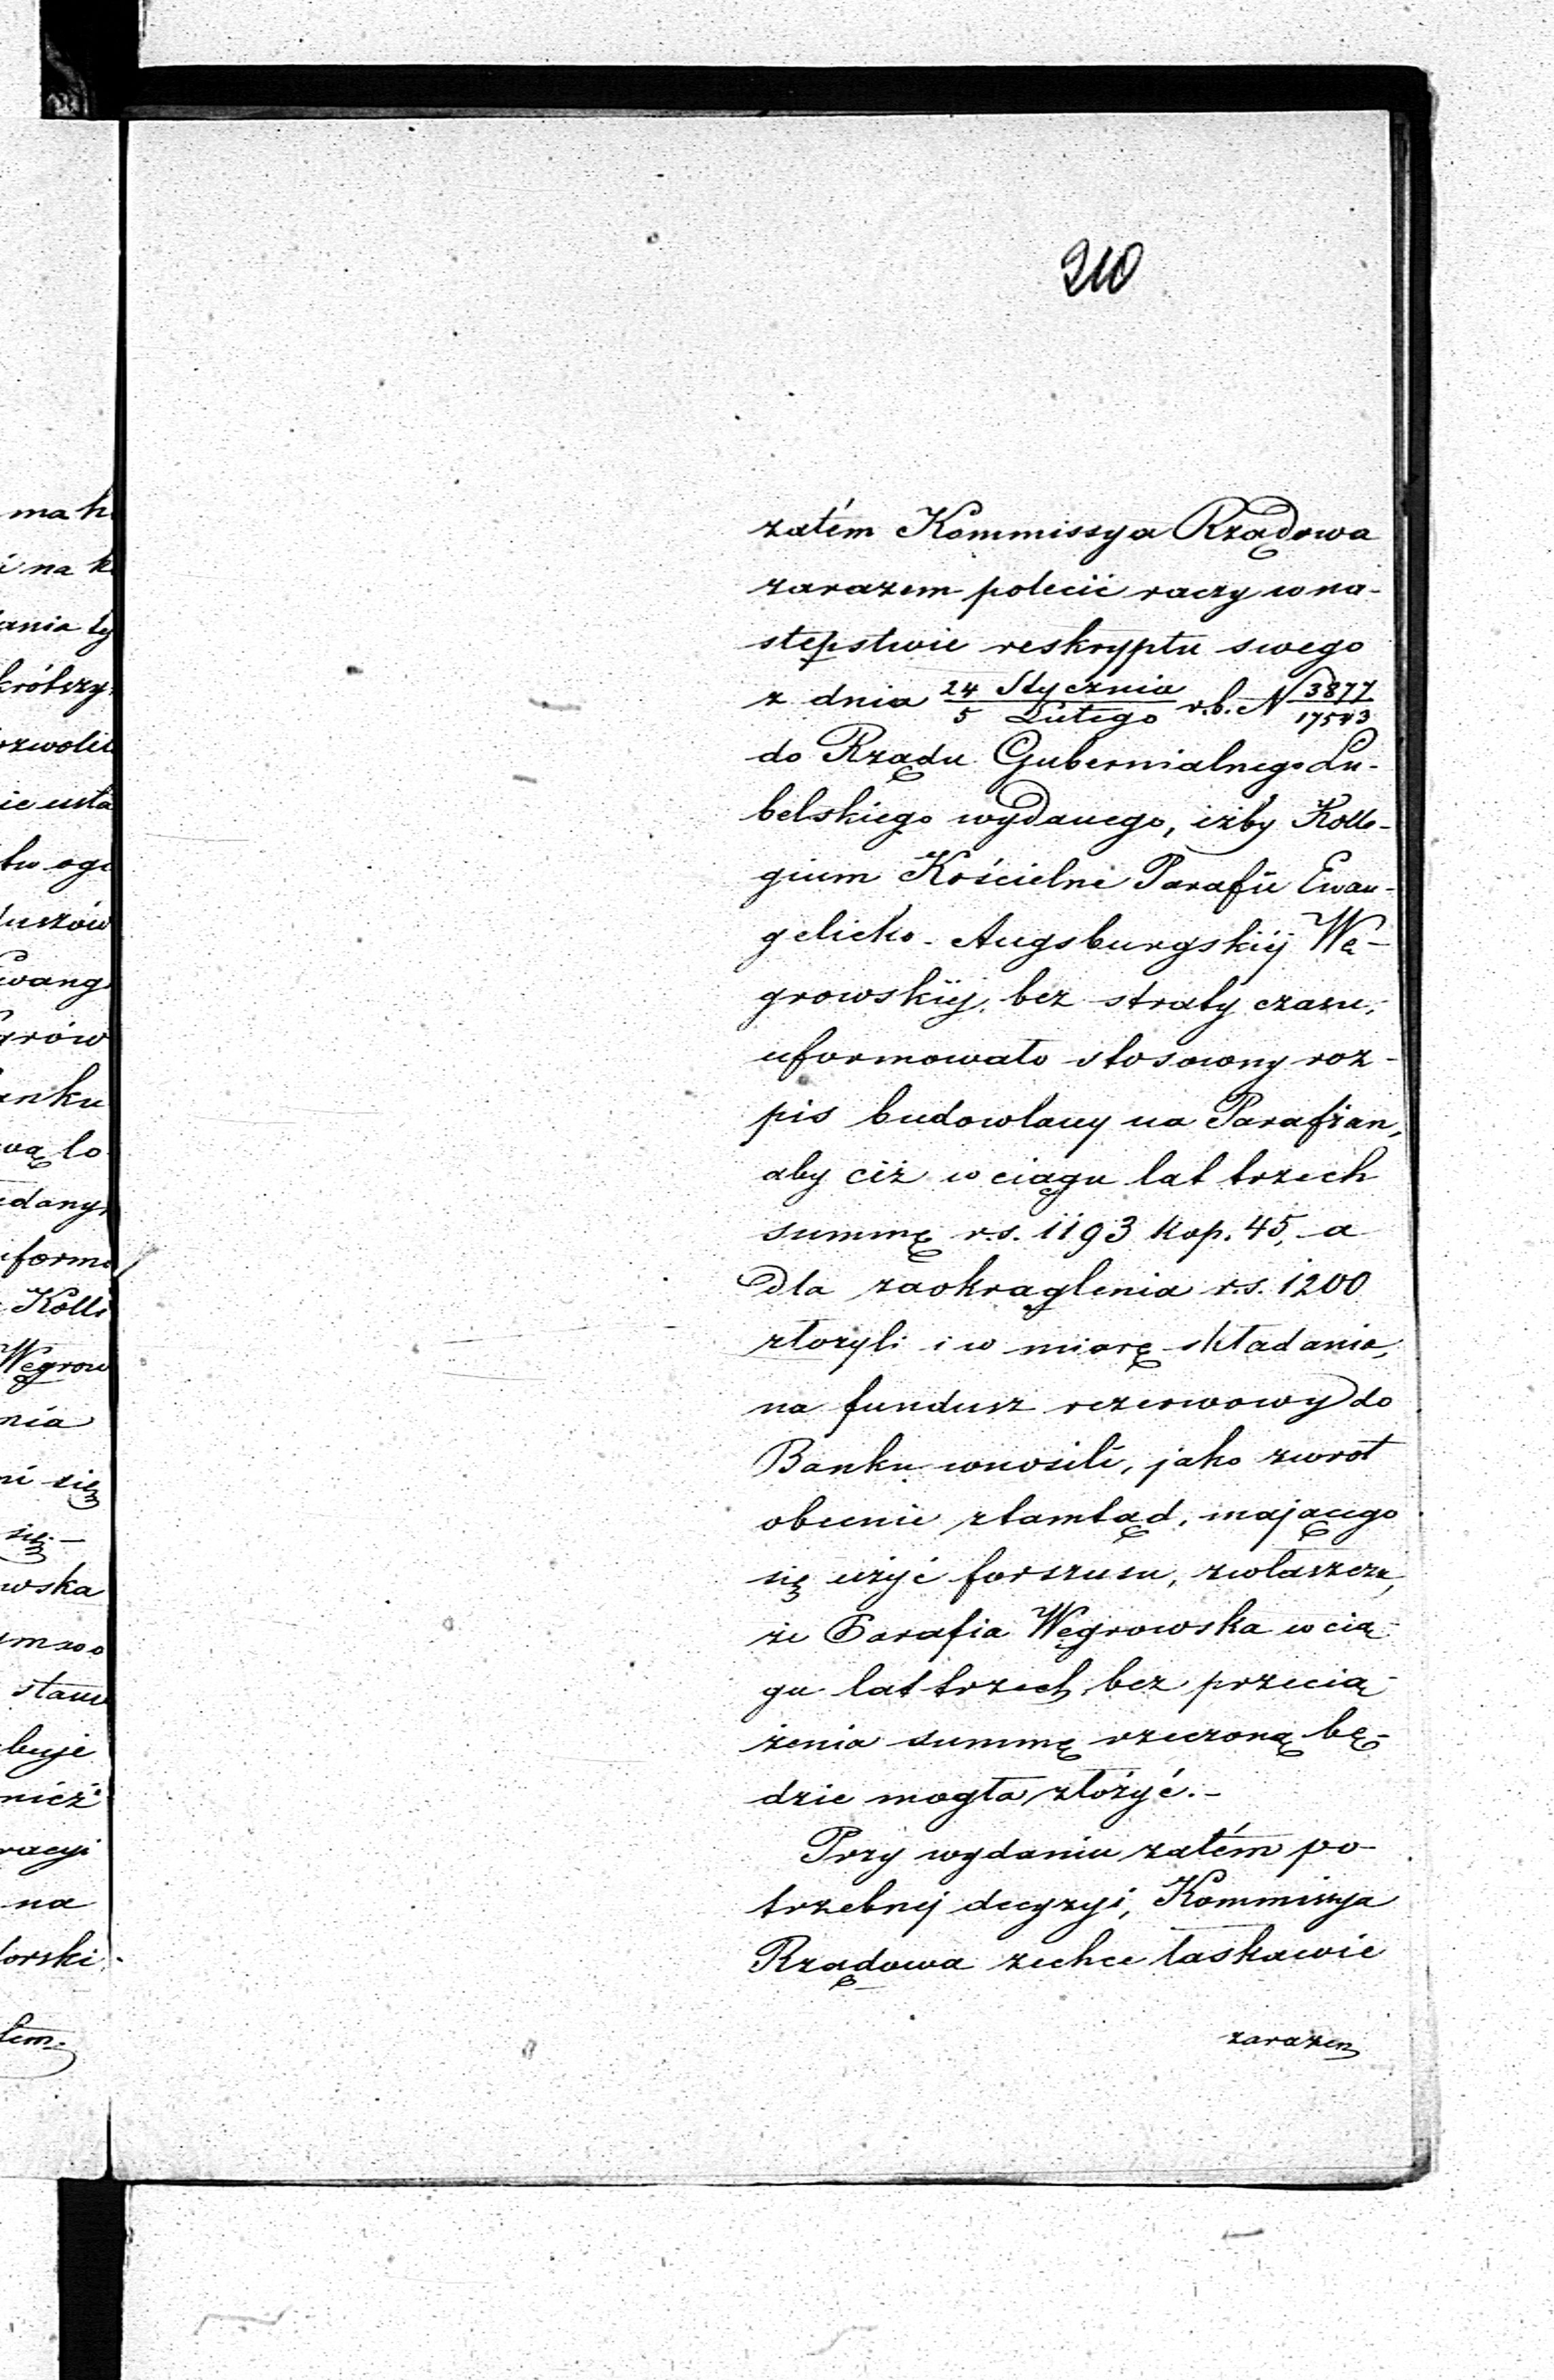 210
zatém Kommissya Rządowa
zarazem polecić raczy w na-
stępstwie reskryptu swego
z dnia 24 Stycznia / 5 Lutego r.b. N 3877 /
do Rządu Gubernialnego Lu-
belskiego wydanego, iżby Kolle-
gium Kościelne Parafii Ewan-
gelicko-Augsburgskiéj Wę-
growskiéj, bez straty czasu,
uformowało stosowny roz-
pis budowlany na Parafian,
aby ciż w ciągu lat trzech
summę r.s. 1193 kop. 45, a
dla zaokrąglenia r.s. 1200
złożyli i w miarę składania,
na fundusz rezerwowy do
Banku wnosili, jako zwrot
obecnie ztamtąd, mającego
się użyć forszusu, zwłaszcza,
że Parafia Węgrowska w cią-
gu lat trzech, bez przecią-
żenia summę rzeczoną bę-
dzie mogła złożyć.-
Przy wydaniu zatém po-
trzebnej decyzyi, Kommissya
Rządowa zechce łaskawie
zarazem
ma
i na
ania ty
krótszy
ozwoli
ie usta
tu ogo
duszów
Ewang
grów
anku
wą lo
edany
form
Kolli
Węgrow
nia
ni się
się -
wska
stanu
buje
nież
racyi
na
torski
tem